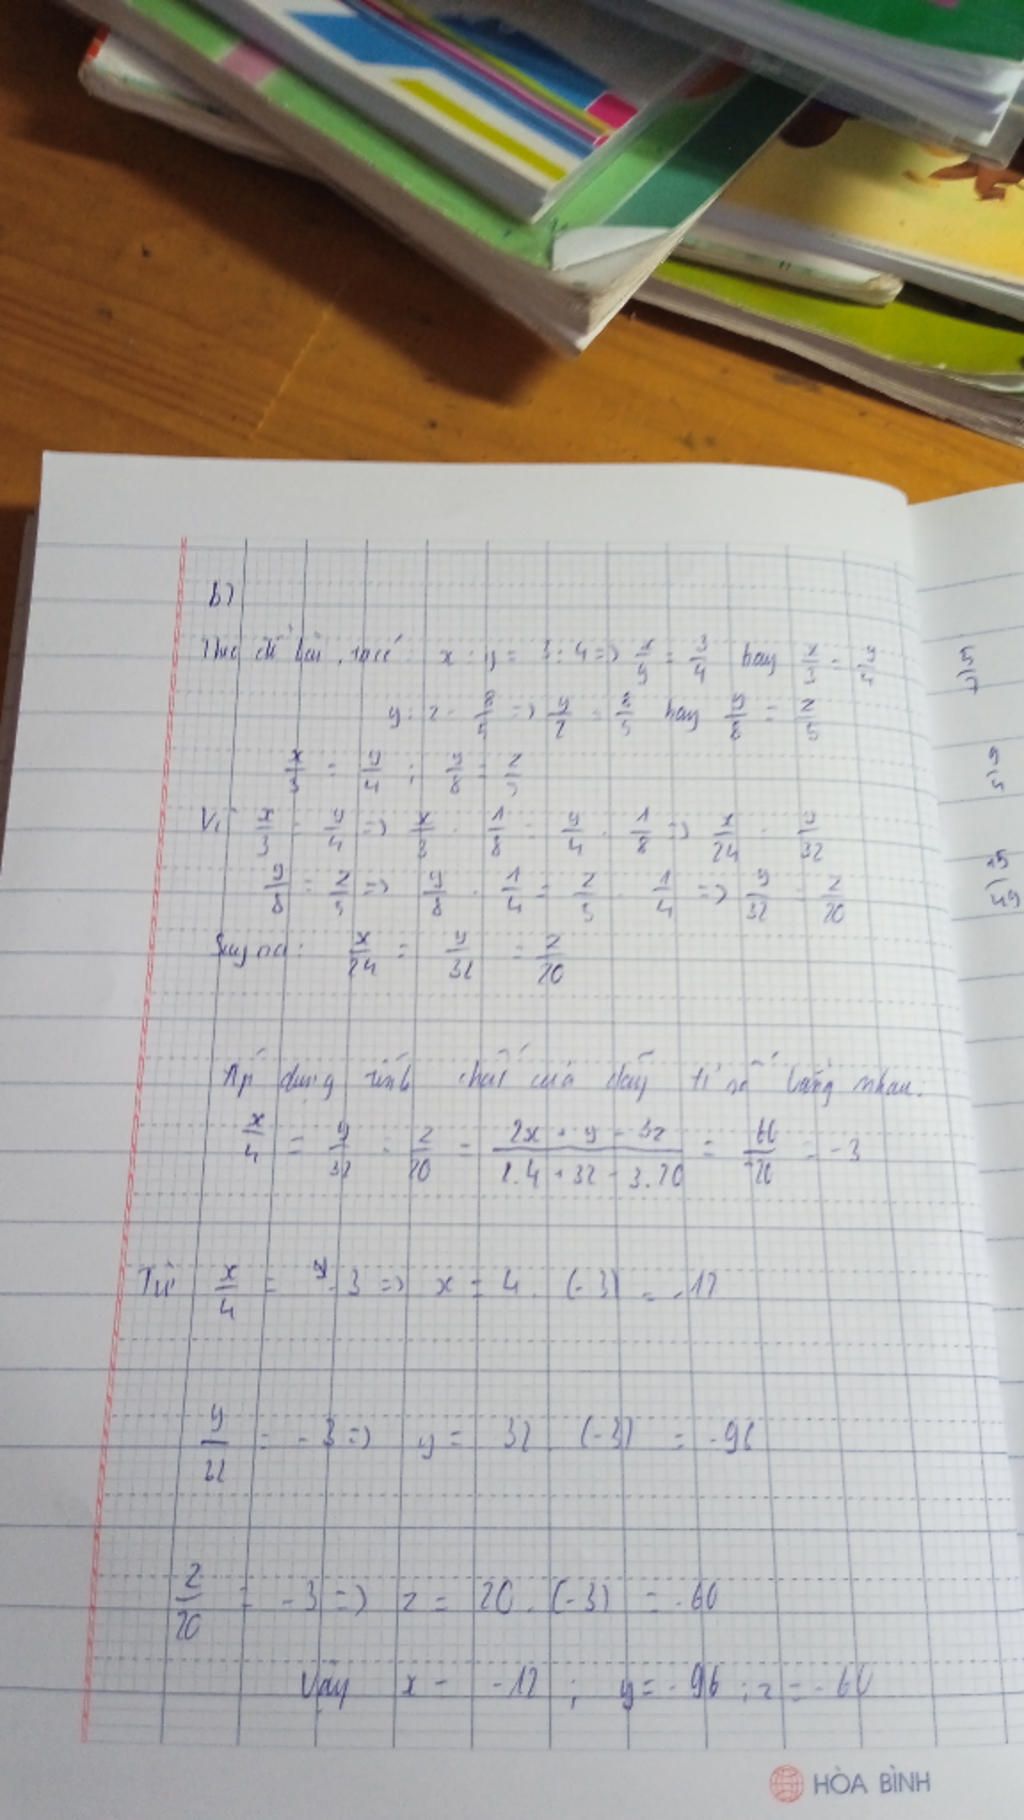 b)
Theo đề bài, ta có: x : y = 3 : 4 => x/y = 3/4 hay x/3 = y/4
y : z = 8/5 => y/z = 8/5 hay y/8 = z/5
x/3 = y/4 ; y/8 = z/5
Vì x/3 = y/4 => x/3 . 1/8 = y/4 . 1/8 => x/24 = y/32
y/8 = z/5 => y/8 . 1/4 = z/5 . 1/4 => y/32 = z/20
Suy ra: x/24 = y/32 = z/20
Áp dụng tính chất của dãy tỉ số bằng nhau.
x/4 = y/32 = z/20 = 2x + y - 3z / 2.4 + 32 - 3.20 = 60/-20 = -3
Từ x/4 = -3 => x = 4 . (-3) = -12
y/32 = -3 => y = 32 . (-3) = -96
z/20 = -3 => z = 20 . (-3) = -60
Vậy x = -12 ; y = -96 ; z = -60
HÒA BÌNH